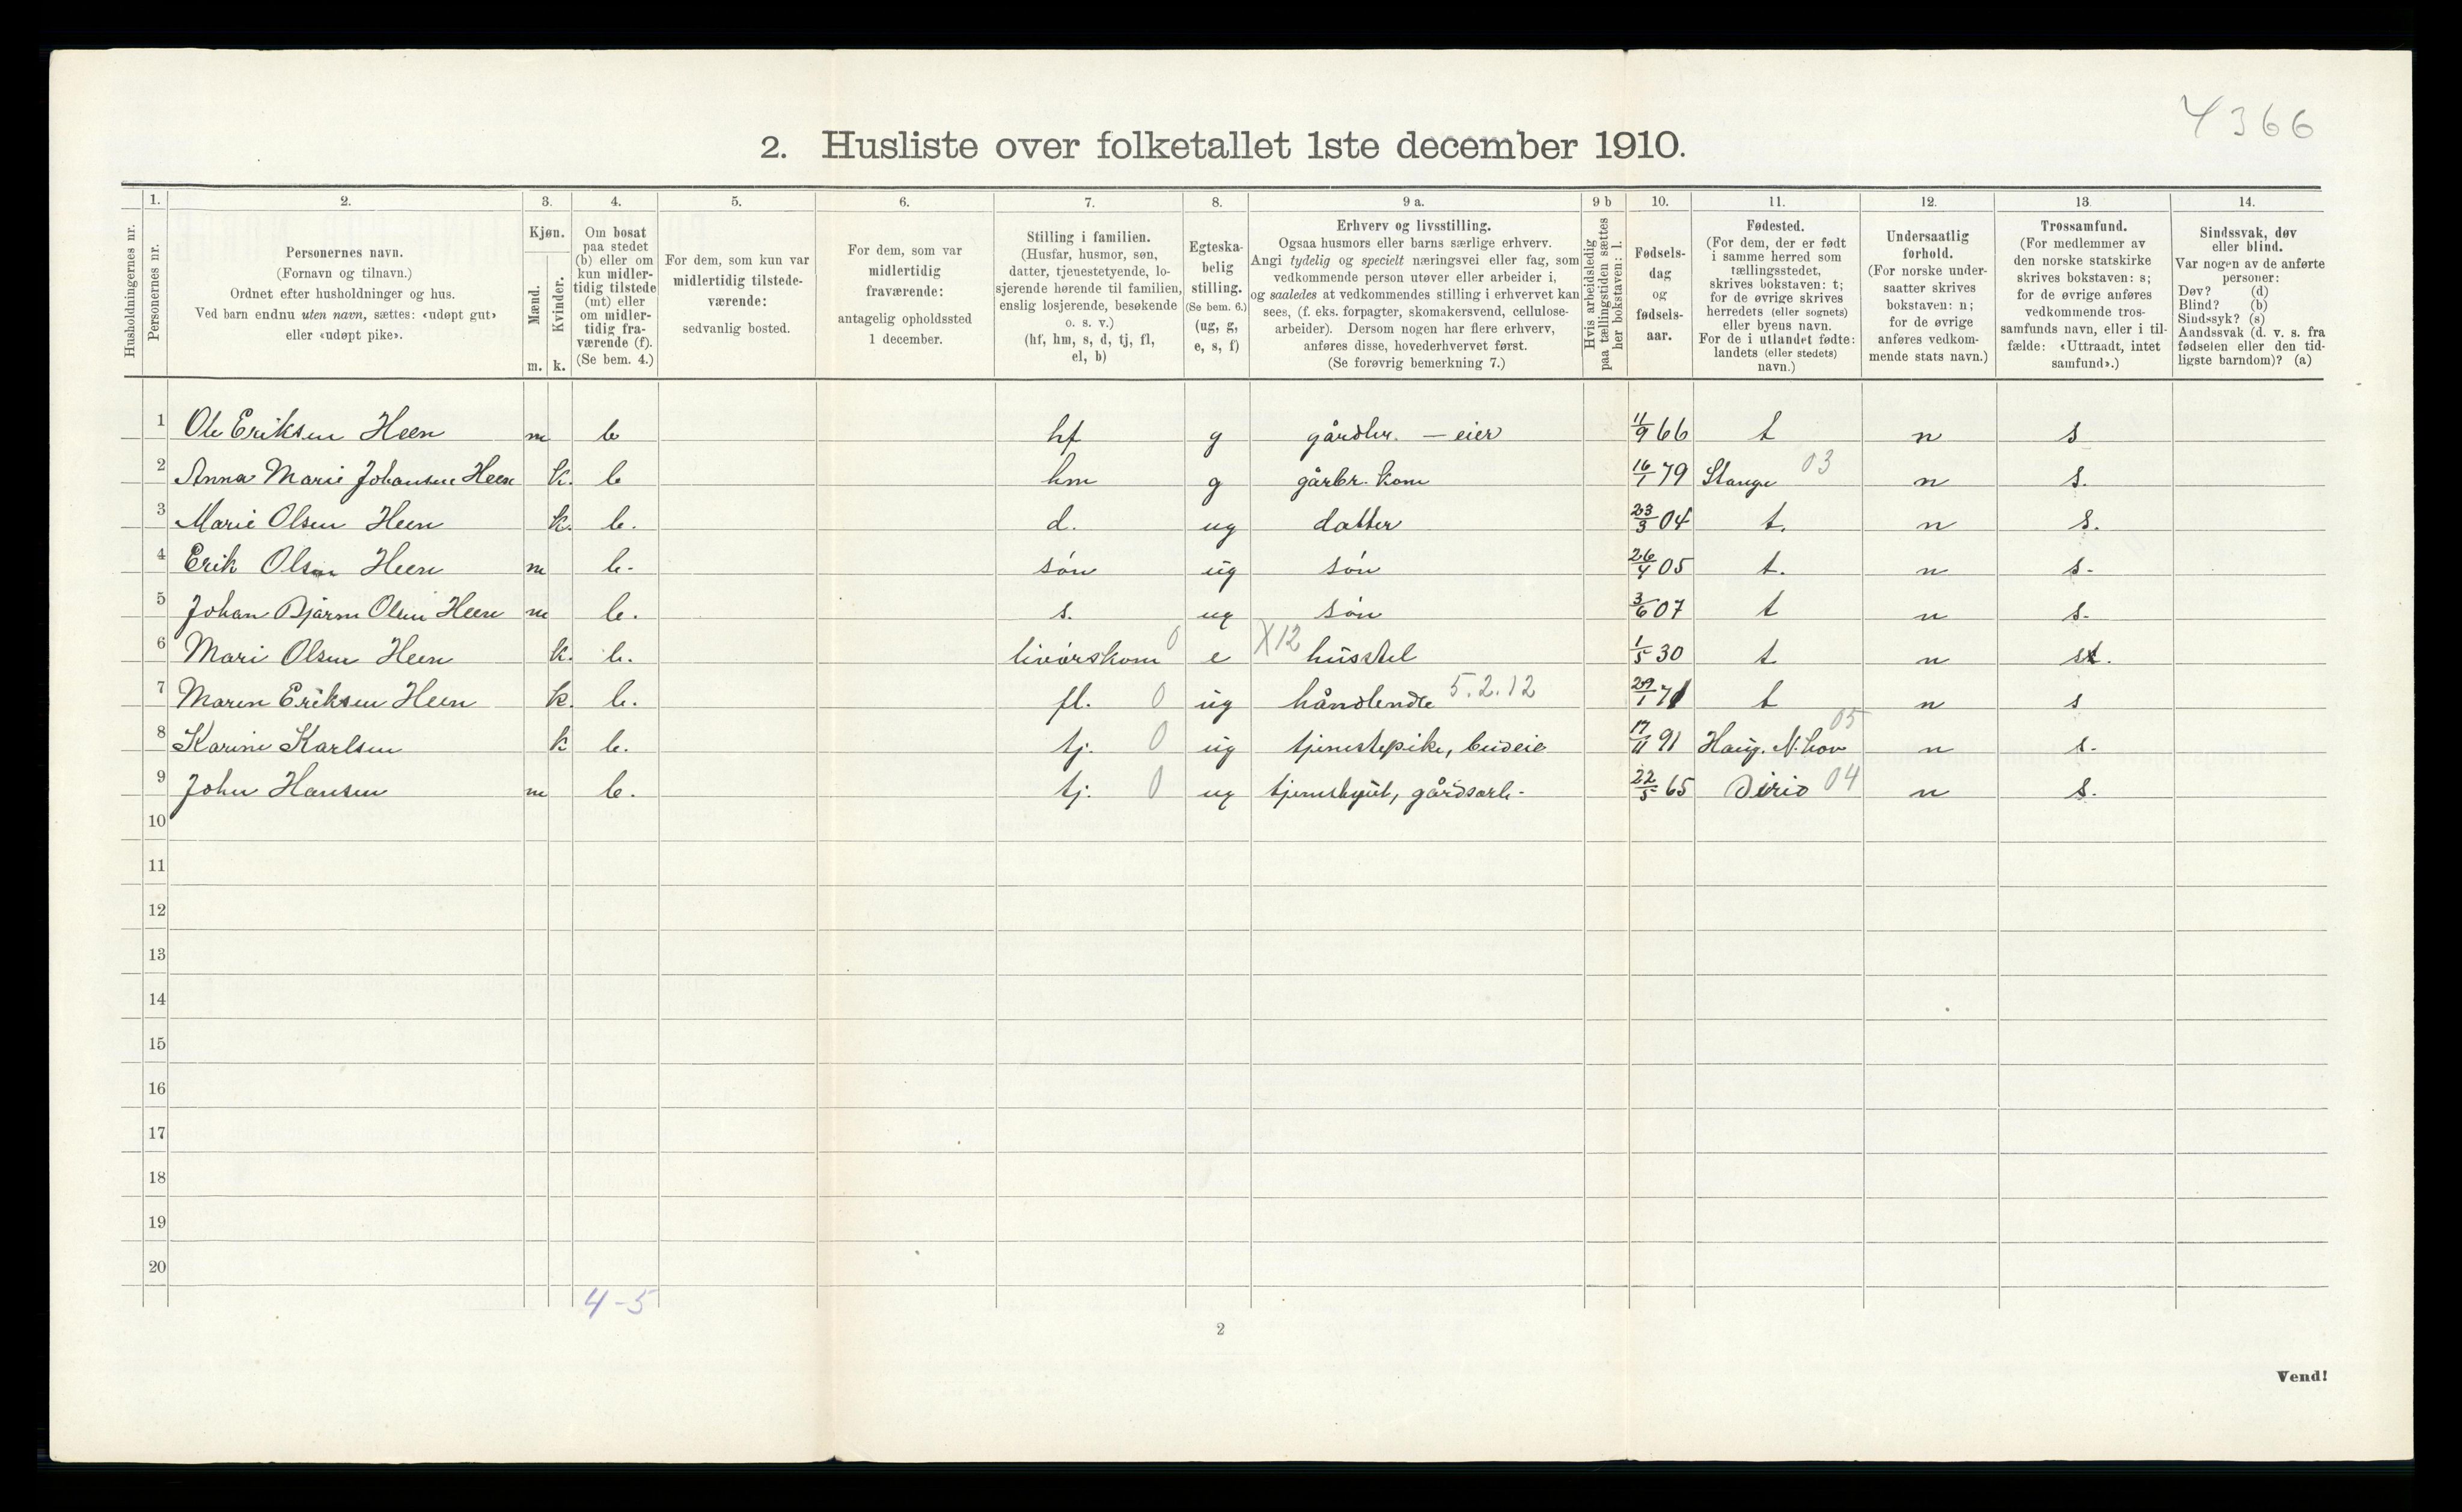 4366
2. Husliste over folketallet 1ste december 1910.
Husholdningernes nr.
1. Personernes nr.
2. Personernes navn.
(Fornavn og tilnavn.)
Ordnet efter husholdninger og hus.
Ved barn endnu uten navn, sættes: «udøpt gut»
eller «udøpt pike».
3. Kjøn.
Mænd. m.
Kvinder. k.
4. Om bosat
paa stedet
(b) eller om
kun midler-
tidig tilstede
(mt) eller
om midler-
tidig fra-
værende (f).
(Se bem. 4.)
5. For dem, som kun var
midlertidig tilstede-
værende:
sedvanlig bosted.
6. For dem, som var
midlertidig
fraværende:
antagelig opholdssted
1 december.
7. Stilling i familien.
(Husfar, husmor, søn,
datter, tjenestetyende, lo-
sjerende hørende til familien,
enslig losjerende, besøkende
o. s. v.)
(hf, hm, s, d, tj, fl,
el, b)
8. Egteska-
belig
stilling.
(Se bem. 6.)
(ug, g,
e, s, f)
9 a. Erhverv og livsstilling.
Ogsaa husmors eller barns særlige erhverv.
Angi tydelig og specielt næringsvei eller fag, som
vedkommende person utøver eller arbeider i,
og saaledes at vedkommendes stilling i erhvervet kan
sees, (f. eks. forpagter, skomakersvend, cellulose-
arbeider). Dersom nogen har flere erhverv,
anføres disse, hovederhvervet først.
(Se forøvrig bemerkning 7.)
9 b Hvis arbeidsledig
paa tællingstiden sættes
her bokstaven: l.
10. Fødsels-
dag
og
fødsels-
aar.
11. Fødested.
(For dem, der er født
i samme herred som
tællingsstedet,
skrives bokstaven: t;
for de øvrige skrives
herredets (eller sognets)
eller byens navn.
For de i utlandet fødte:
landets (eller stedets)
navn.)
12. Undersaatlig
forhold.
(For norske under-
saatter skrives
bokstaven: n;
for de øvrige
anføres vedkom-
mende stats navn.)
13. Trossamfund.
(For medlemmer av
den norske statskirke
skrives bokstaven: s;
for de øvrige anføres
vedkommende tros-
samfunds navn, eller i til-
fælde: «Uttraadt, intet
samfund».)
14. Sindssvak, døv
eller blind.
Var nogen av de anførte
personer:
Døv? (d)
Blind? (b)
Sindssyk? (s)
Aandssvak (d. v. s. fra
fødselen eller den tid-
ligste barndom)? (a)
1 Ole Eriksen Heen m b hf g gårdbr. — eier 11/9 66 t n s
2 Anna Marie Johansen Heen k. b hm g gårbr. kone 16/1 79 Stange 03 n s.
3 Marie Olsen Heen k. b. d. ug datter 23/3 04 t. n s.
4 Erik Olsen Heen m b. søn ug søn 26/4 05 t. n s.
5 Johan Bjarne Olsen Heen m b. s. ug søn 3/6 07 t n s.
6 Mari Olsen Heen k. b. livørskone 0 e X12 husstel 1/5 30 t n s.
7 Maren Eriksen Heen k. b. fl. 0 ug håndlende 5.2.12 29/1 71 t n s
8 Karine Karlsen k b. tj. 0 ug tjenestepike, budeie 17/11 91 Haug. N. 05 n s.
9 John Hansen m b. tj. 0 ug gårdsarb. 22/5 65 04 n s.
10
11
12
13
14
15
16
17
18
19
20
4-5
2
Vend!